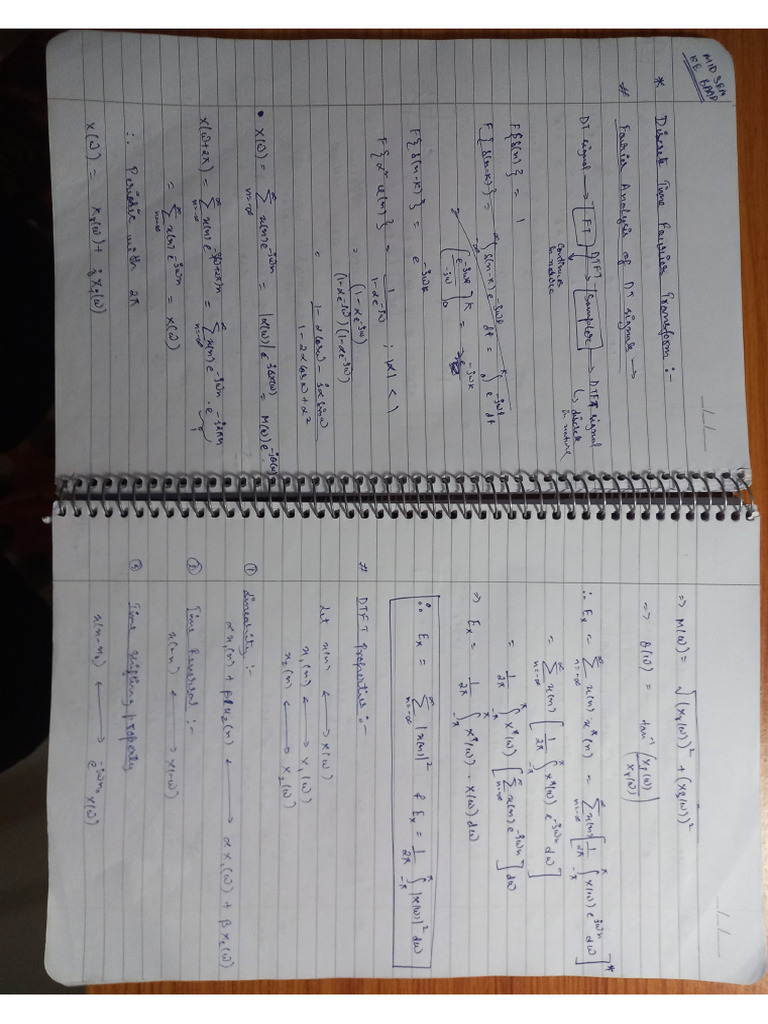 MID SEM
KE BAAD
* Discrete Time Fourier Transform :-
# Fourier Analysis of DT signals →
DT signal → [FT] → DTFT → [Sampler] → DTFT signal
Continuous in nature
↳ discrete in nature
F{δ(n)} = 1
F{δ(n-k)} = ∫ δ(n-k) e^{-jωt} dt = ∫ e^{-jωt} dt
F{δ(n-k)} = e^{-jωk}
F{α^n u(n)} = 1/(1-αe^{-jω}) ; |α| < 1
= (1-αe^{jω})/((1-αe^{-jω})(1-αe^{jω}))
= (1-α cosω - jα sinω)/(1-2α cosω+α²)
• X(ω) = Σ_{n=-∞}^{∞} x(n) e^{-jωn} = |X(ω)| e^{-jθ(ω)} = M(ω) e^{-jθ(ω)}
X(ω+2π) = Σ_{n=-∞}^{∞} x(n) e^{-j(ω+2π)n} = Σ_{n=-∞}^{∞} x(n) e^{-jωn} · e^{-j2πn}
= Σ_{n=-∞}^{∞} x(n) e^{-jωn} = X(ω)
∴ Periodic with 2π
X(ω) = X_r(ω) + j X_i(ω)
⇒ M(ω) = √((X_r(ω))² + (X_i(ω))²)
⇒ θ(ω) = tan⁻¹ [X_i(ω)/X_r(ω)]
∴ E_x = Σ_{n=-∞}^{∞} x(n) x*(n) = Σ_{n=-∞}^{∞} x(n) [1/2π ∫_{-π}^{π} X(ω) e^{jωn} dω]*
= Σ_{n=-∞}^{∞} x(n) [1/2π ∫_{-π}^{π} X*(ω) e^{-jωn} dω]
= 1/2π ∫_{-π}^{π} X*(ω) [Σ_{n=-∞}^{∞} x(n) e^{-jωn}] dω
⇒ E_x = 1/2π ∫_{-π}^{π} X*(ω) · X(ω) dω
∴ E_x = Σ_{n=-∞}^{∞} |x(n)|² & E_x = 1/2π ∫_{-π}^{π} |X(ω)|² dω
# DTFT properties :-
Let x(n) ⟷ X(ω)
x₁(n) ⟷ X₁(ω)
x₂(n) ⟷ X₂(ω)
① Linearity :-
αx₁(n) + βx₂(n) ⟷ αX₁(ω) + βX₂(ω)
② Time Reversal :-
x(-n) ⟷ X(-ω)
③ Time shifting property
x(n-n₀) ⟷ e^{-jωn₀} X(ω)